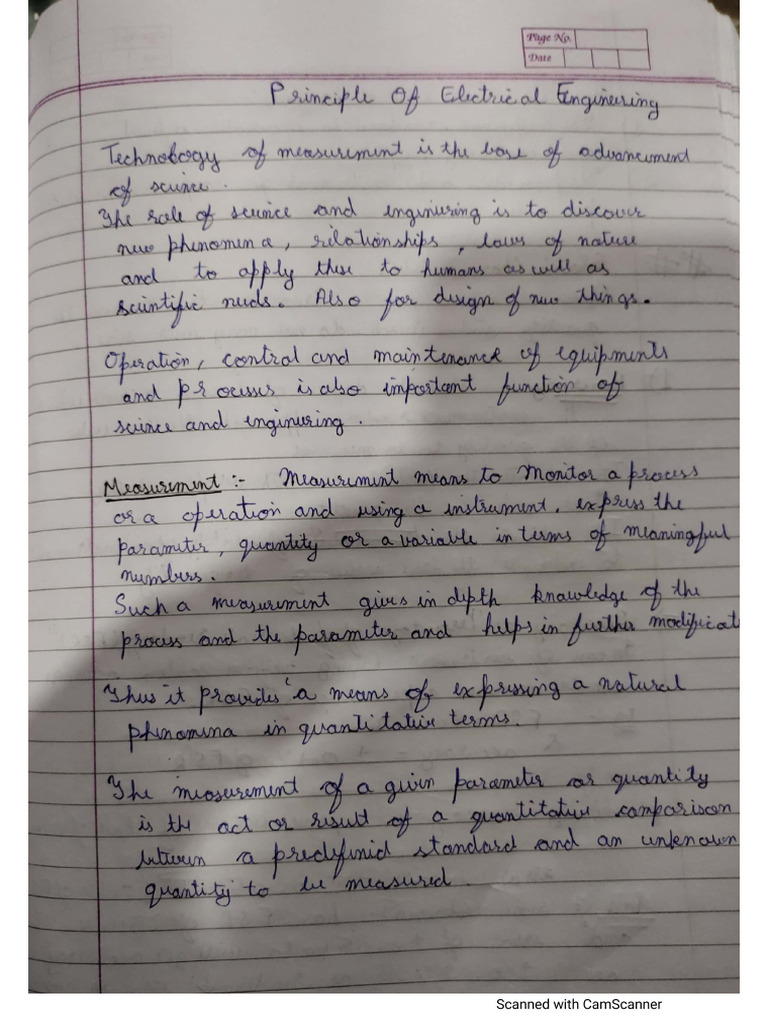 Page No.
Date
Principle Of Electrical Engineering
Technology of measurement is the base of advancement
of science.
The role of science and engineering is to discover
new phenomena, relationships, laws of nature
and to apply these to humans as well as
scientific needs. Also for design of new things.
Operation, control and maintenance of equipments
and processes is also important function of
science and engineering.
Measurement :- Measurement means to monitor a process
or a operation and using a instrument, express the
parameter, quantity or a variable in terms of meaningful
numbers.
Such a measurement gives in depth knowledge of the
process and the parameter and helps in further modificat
Thus it provides a means of expressing a natural
phenomena in quantitative terms.
The measurement of a given parameter or quantity
is the act or result of a quantitative comparison
between a predefined standard and an unknown
quantity to be measured.
Scanned with CamScanner